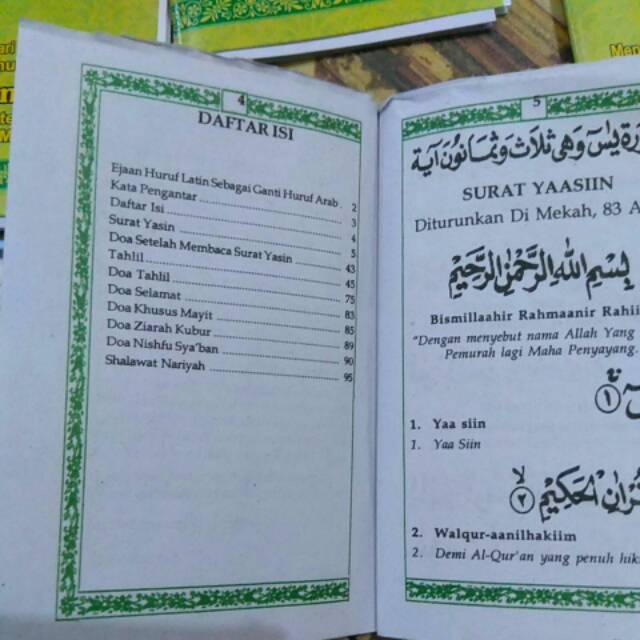 4
DAFTAR ISI
Ejaan Huruf Latin Sebagai Ganti Huruf Arab 2
Kata Pengantar 3
Daftar Isi 4
Surat Yasin 5
Doa Setelah Membaca Surat Yasin 43
Tahlil 45
Doa Tahlil 75
Doa Selamat 83
Doa Khusus Mayit 85
Doa Ziarah Kubur 89
Doa Nishfu Sya'ban 90
Shalawat Nariyah 95
5
يس وهي ثلاث وثمانون آية
SURAT YAASIIN
Diturunkan Di Mekah, 83 A
بِسْمِ اللهِ الرَّحْمٰنِ الرَّحِيْمِ
Bismillaahir Rahmaanir Rahii
"Dengan menyebut nama Allah Yang
Pemurah lagi Maha Penyayang.
١
1. Yaa siin
1. Yaa Siin
الْحَكِيْمِ ٢
2. Walqur-aanilhakiim
2. Demi Al-Qur'an yang penuh hik